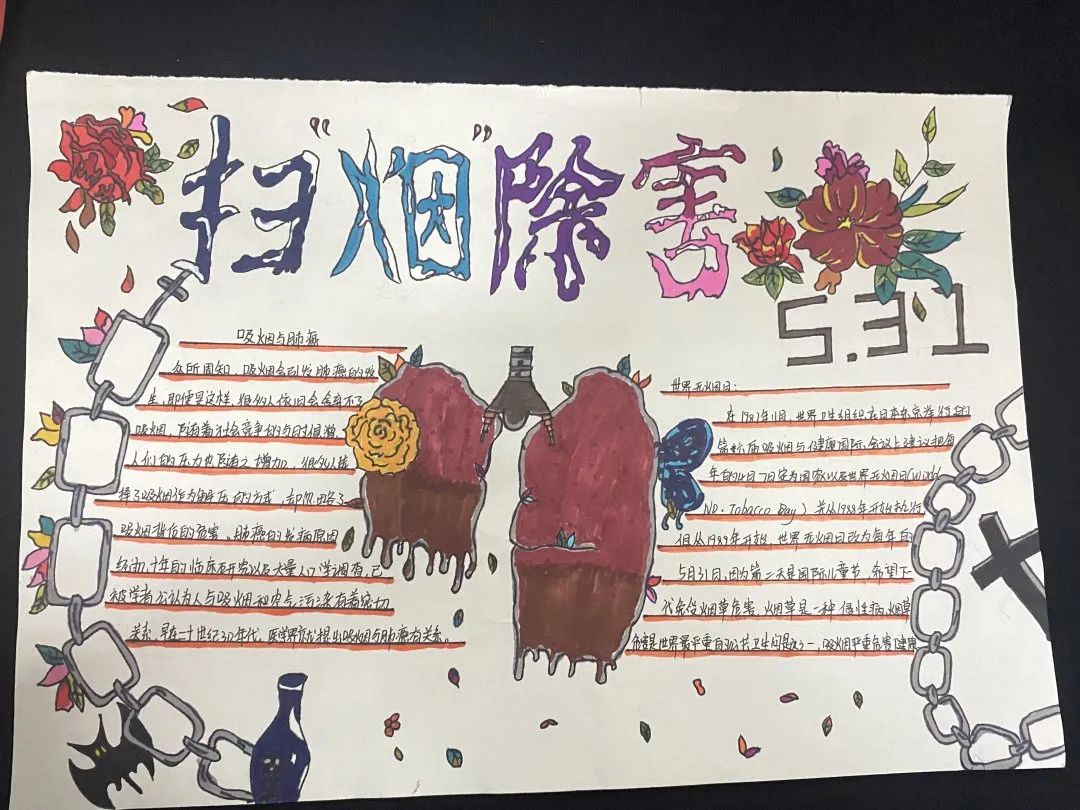 扫“烟”除害
5.31
吸烟与肺癌
众所周知，吸烟会引发肺癌的发
生，即便是这样，很多人依旧会舍弃不了
吸烟，随着社会竞争的与时俱增，
人们的压力也随之增加，很多人选
择了吸烟作为解压的方式，却忽略了
吸烟背后的危害，肺癌的发病原因
经初十年的临床研究以及大量人口学调查，已
被学者公认为人与吸烟和空气污染有着密切
关系，早在二十世纪30年代，医学界就提出吸烟与肺癌有关系。
世界无烟日：
在1987年11月，世界卫生组织在日本东京举行的
第六届吸烟与健康国际会议上建议把每
年的4月7日定为国家以及世界无烟日(World
NO·Tobacco Day) 并从1988年开始执行
但从1989年开始，世界无烟日改为每年的
5月31日，因为第二天是国际儿童节，希望下
代免受烟草危害，烟草是一种慢性病，烟草
危害是世界最严重的公共卫生问题之一，吸烟严重危害健康